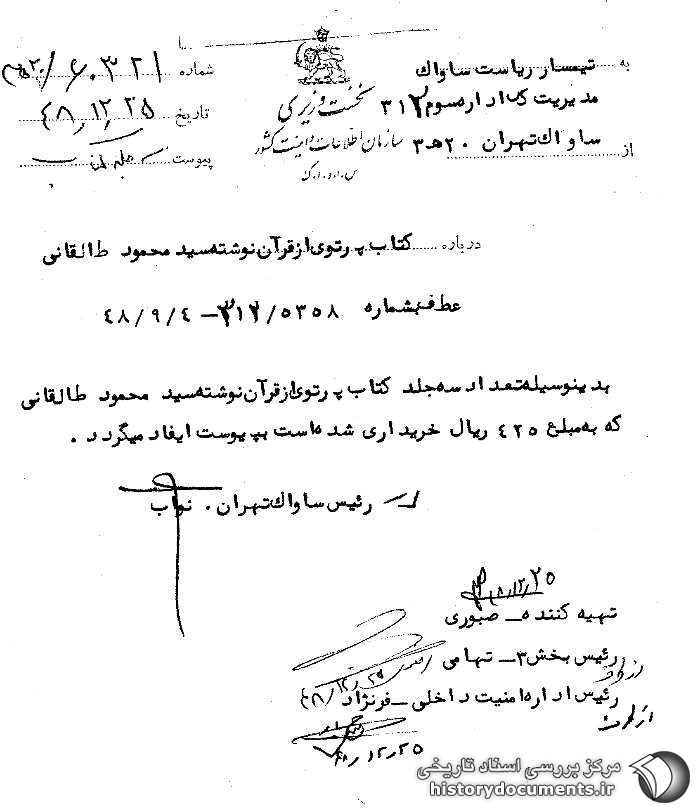 به تیمسار ریاست ساواک
مدیریت کل اداره سوم ۳۱۲
از ساواک تهران ۲۰ هـ ۳
نخست وزیری
سازمان اطلاعات و امنیت کشور
س.ا.و.ا.ک
شماره ۶۰۳۲۱/
تاریخ ۴۸,۱۲,۲۵
پیوست
درباره کتاب پرتوی از قرآن نوشته سید محمود طالقانی
عطف بشماره ۵۳۵۸/۳۱۲-۴۸/۹/۴
بدینوسیله تعداد سه جلد کتاب پرتوی از قرآن نوشته سید محمود طالقانی
که به مبلغ ۴۲۵ ریال خریداری شده است بپیوست ایفاد میگردد.
رئیس ساواک تهران. نواب
تهیه کننده - صبوری
رئیس بخش ۳ - تهامی
رئیس اداره امنیت داخلی - فرنژاد
۴۸,۱۲,۲۵
مرکز بررسی اسناد تاریخی
historydocuments.ir